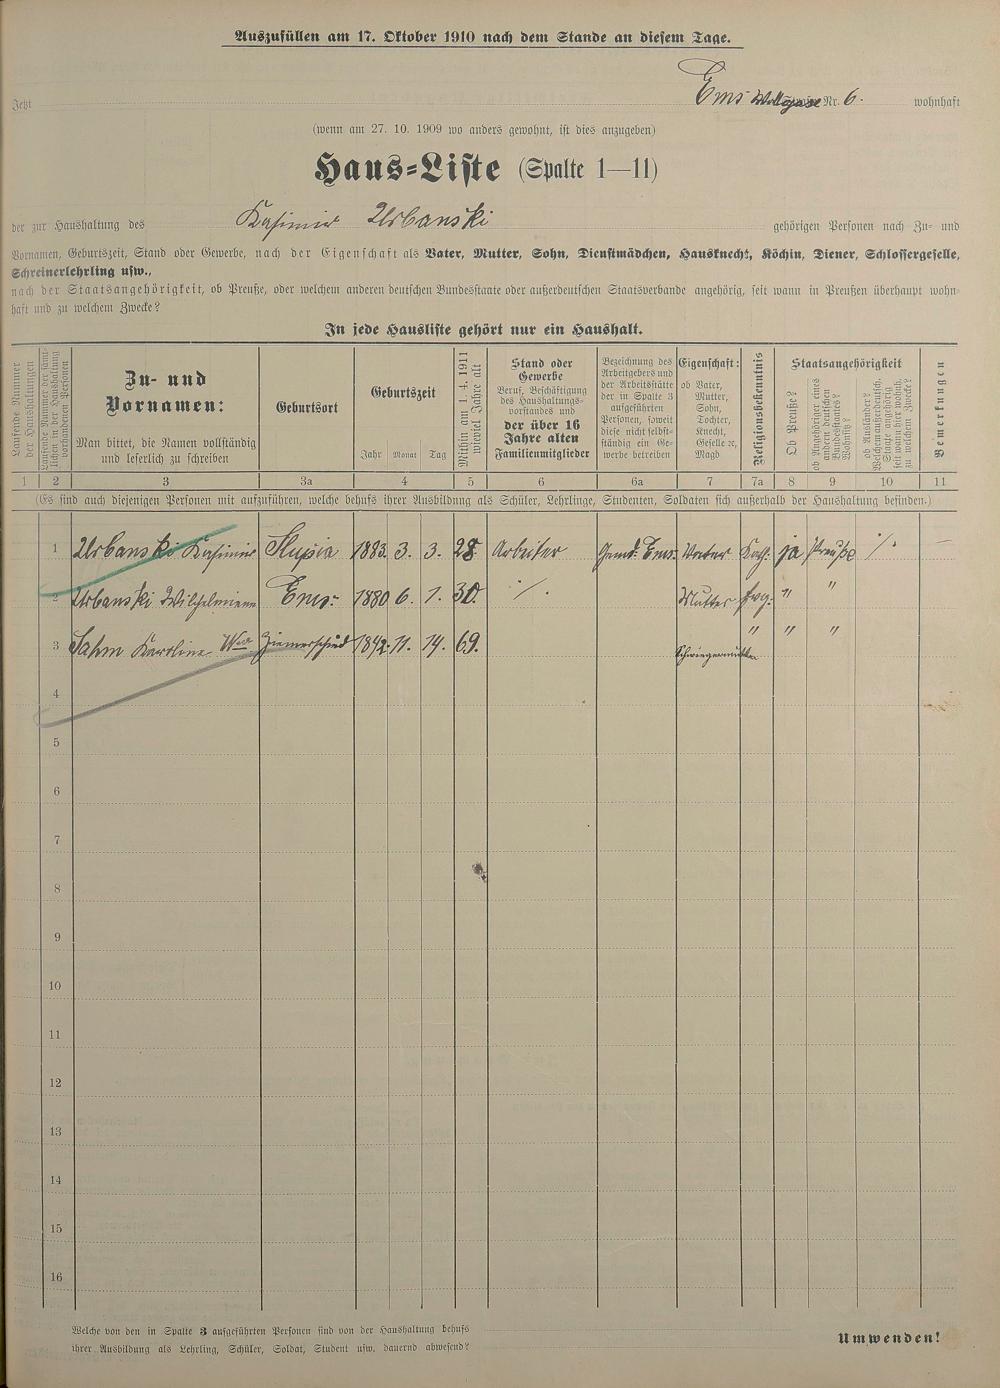 Auszufüllen am 17. Oktober 1910 nach dem Stande an diesem Tage.
Jetzt Ems Nr. 6. wohnhaft
(wenn am 27. 10. 1909 wo anders gewohnt, ist dies anzugeben)
Haus-Liste (Spalte 1—11)
der zur Haushaltung des Kasimir Urbanski gehörigen Personen nach Zu- und
Vornamen, Geburtszeit, Stand oder Gewerbe, nach der Eigenschaft als Vater, Mutter, Sohn, Dienstmädchen, Hausknecht, Köchin, Diener, Schlossergeselle,
Schreinerlehrling usw.,
nach der Staatsangehörigkeit, ob Preuße, oder welchem anderen deutschen Bundesstaate oder außerdeutschen Staatsverbande angehörig, seit wann in Preußen überhaupt wohn-
haft und zu welchem Zwecke?
In jede Hausliste gehört nur ein Haushalt.
Laufende Nummer
der Haushaltungen
Laufende Nummer der sämt-
lichen in der Haushaltung
vorhandenen Personen
Zu- und
Vornamen:
Man bittet, die Namen vollständig
und leserlich zu schreiben
Geburtsort
Geburtszeit
Jahr Monat Tag
Mithin am 1. 4. 1911
wieviel Jahre alt
Stand oder
Gewerbe
Beruf, Beschäftigung
des Haushaltungs-
vorstandes und
der über 16
Jahre alten
Familienmitglieder
Bezeichnung des
Arbeitgebers und
der Arbeitstätte
der in Spalte 3
aufgeführten
Personen, soweit
diese nicht selbst-
ständig ein Ge-
werbe betreiben
Eigenschaft:
ob Vater,
Mutter,
Sohn,
Tochter,
Knecht,
Geselle ꝛc,
Magd
Religionsbekenntnis
Staatsangehörigkeit
Ob Preuße?
ob Angehöriger eines
andern deutschen
Bundesstaates?
Wohnsitz?
ob Ausländer?
Welchem außerdeutsch.
Staate angehörig
seit wann hier wohnh.
zu welchem Zwecke?
Bemerkungen
1 2 3 3a 4 5 6 6a 7 7a 8 9 10 11
(Es sind auch diejenigen Personen mit aufzuführen, welche behufs ihrer Ausbildung als Schüler, Lehrlinge, Studenten, Soldaten sich außerhalb der Haushaltung befinden.)
1 Urbanski Kasimir Slupia 1883. 3. 3. 28. Arbeiter Gemd. Ems. Vater Kath. ja Preuße ·/. —
2 Urbanski Wilhelmine Ems. 1880 6. 1. 30. ·/. Mutter evg. " "
3 Sahm Karoline Wwe 1842. 11. 14. 69. Schwiegermutter " " "
4
5
6
7
8
9
10
11
12
13
14
15
16
Welche von den in Spalte 3 aufgeführten Personen sind von der Haushaltung behufs
ihrer Ausbildung als Lehrling, Schüler, Soldat, Student usw. dauernd abwesend?
Umwenden!